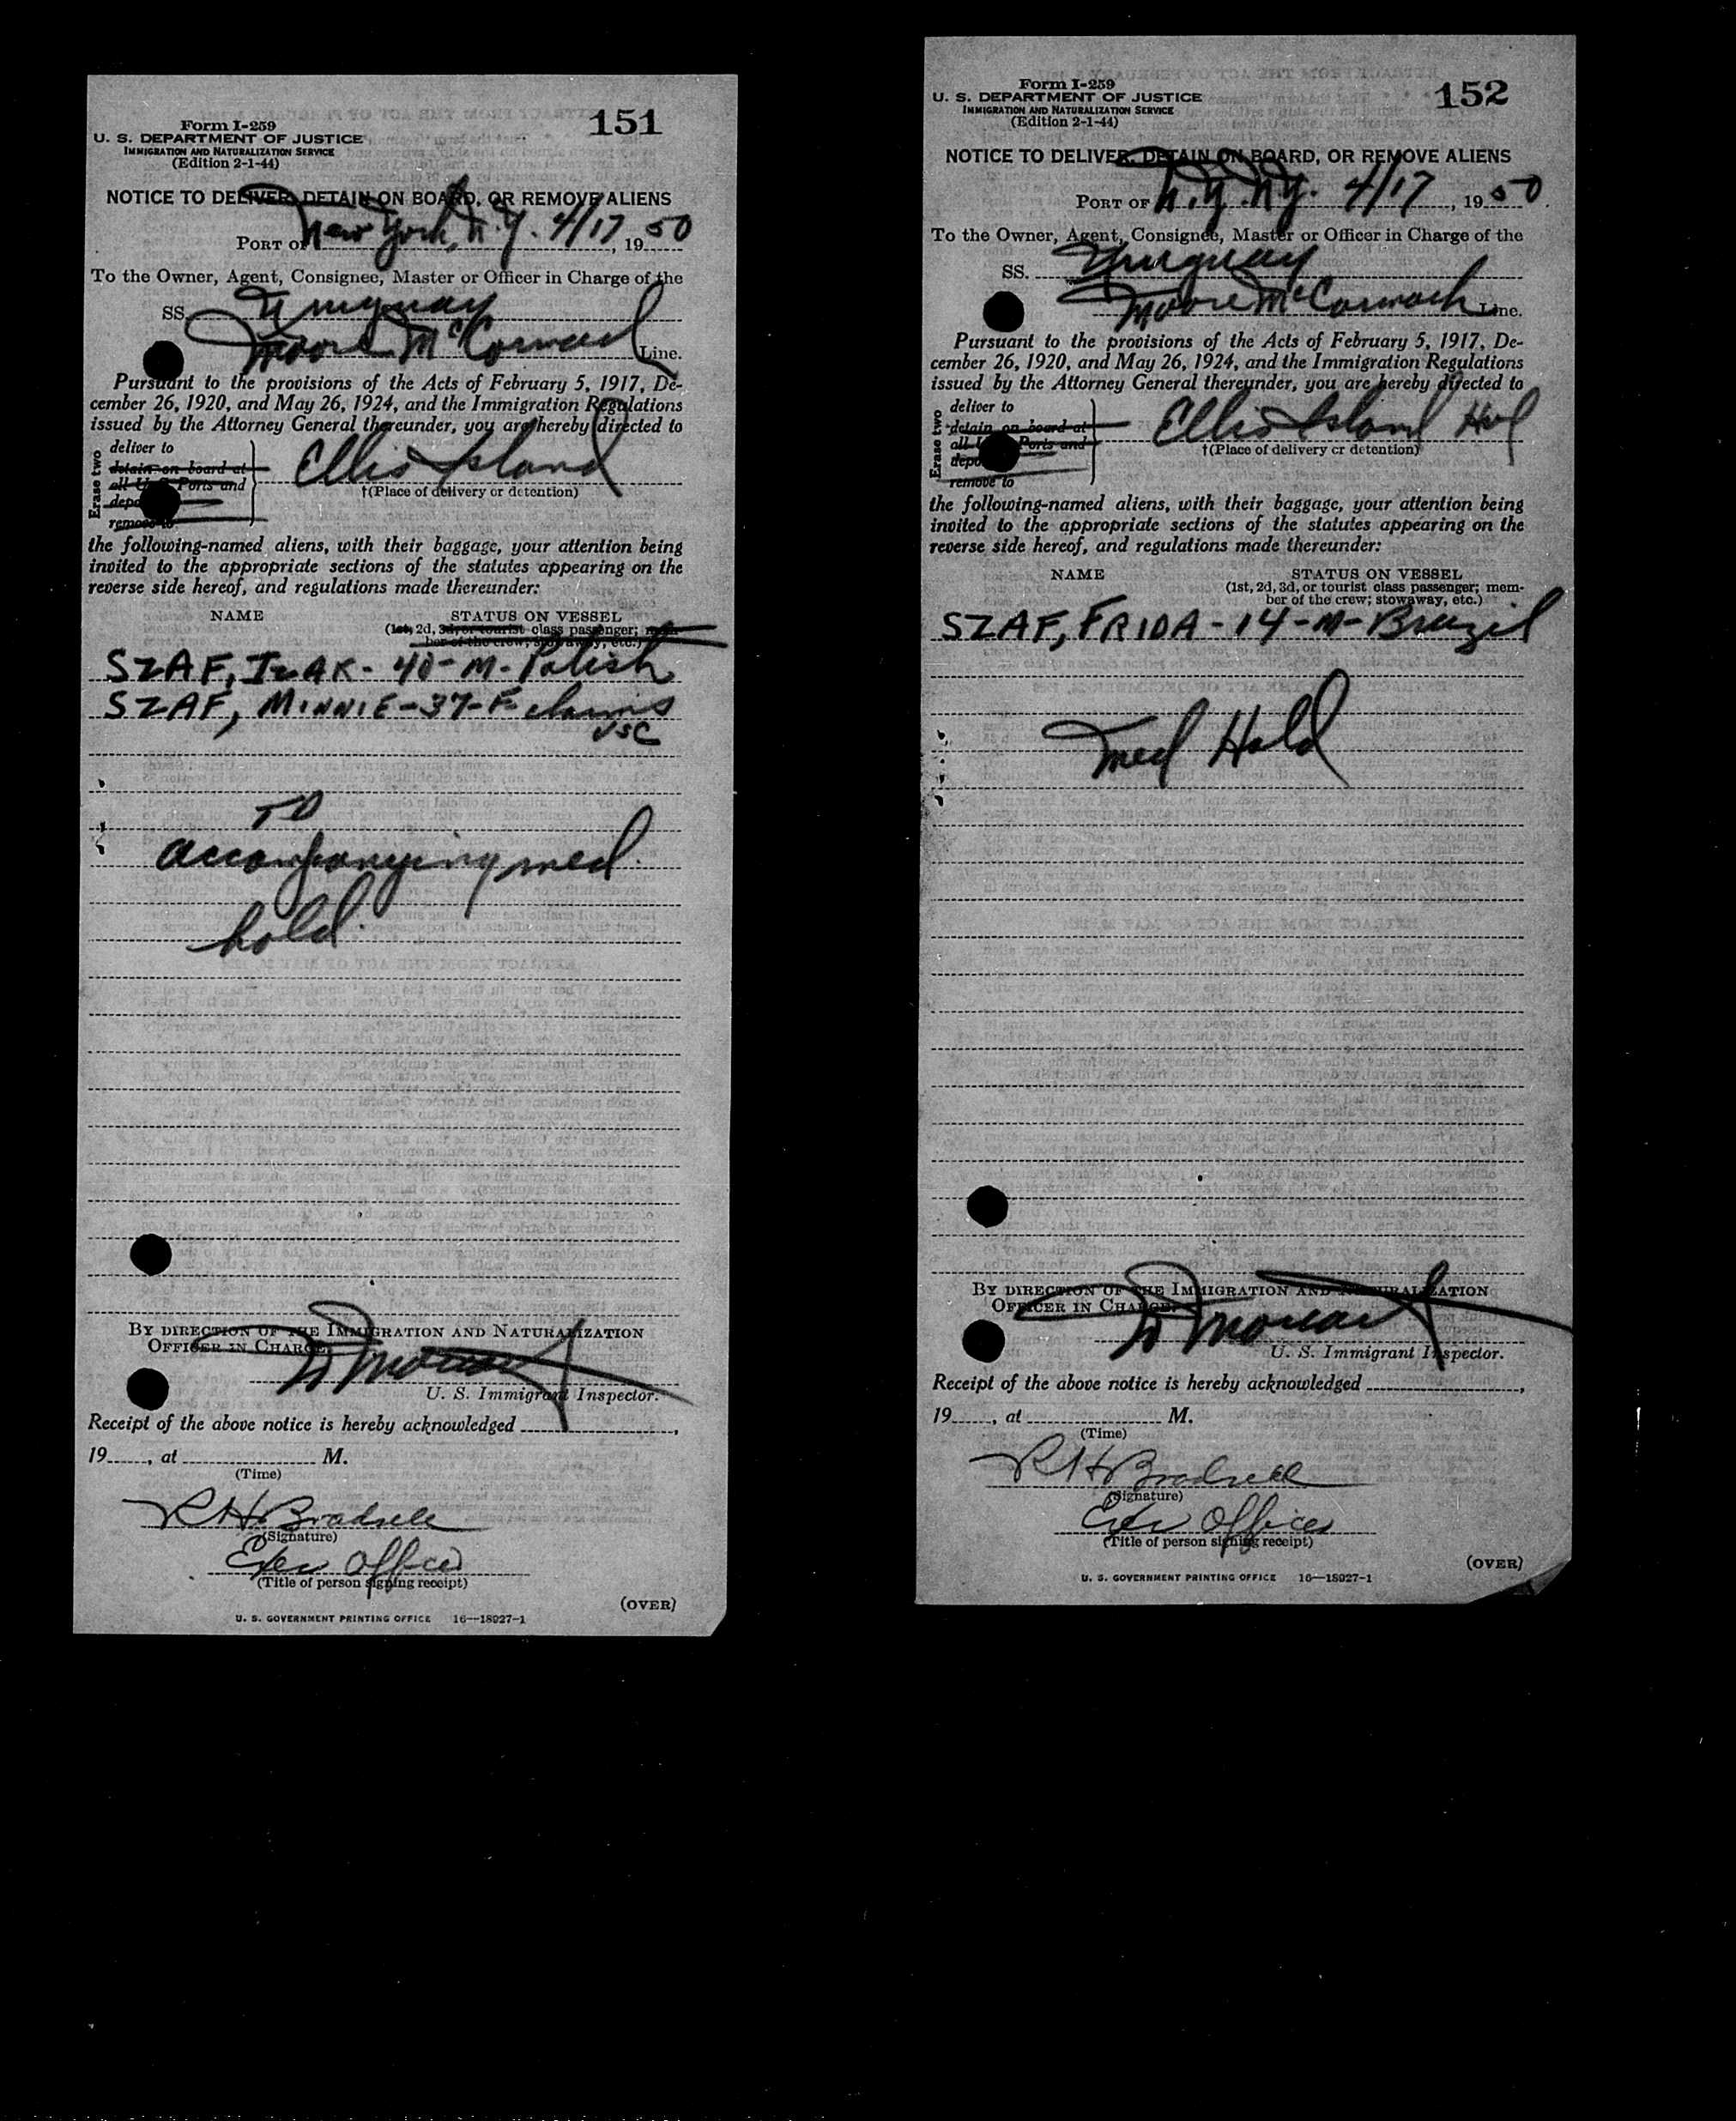 151
Form I-259
U. S. DEPARTMENT OF JUSTICE
IMMIGRATION AND NATURALIZATION SERVICE
(Edition 2-1-44)
NOTICE TO DELIVER, DETAIN ON BOARD, OR REMOVE ALIENS
PORT OF New York, N.Y. 4/17, 1950
To the Owner, Agent, Consignee, Master or Officer in Charge of the
SS. Uruguay
Moore McCormack Line.
Pursuant to the provisions of the Acts of February 5, 1917, De-
cember 26, 1920, and May 26, 1924, and the Immigration Regulations
issued by the Attorney General thereunder, you are hereby directed to
Erase two
deliver to
detain on board at
all U. S. Ports and
depo
remove to
Ellis Island
†(Place of delivery or detention)
the following-named aliens, with their baggage, your attention being
invited to the appropriate sections of the statutes appearing on the
reverse side hereof, and regulations made thereunder:
NAME STATUS ON VESSEL
(1st, 2d, 3d, or tourist class passenger; mem-
ber of the crew; stowaway, etc.)
SZAF, IZAK - 40 - M - Polish
SZAF, MINNIE - 37 - F claims
USC
TD
accompanying med
hold.
BY DIRECTION OF THE IMMIGRATION AND NATURALIZATION
OFFICER IN CHARGE:
U. S. Immigrant Inspector.
Receipt of the above notice is hereby acknowledged ,
19 , at M.
(Time)
(Signature)
Exec Officer
(Title of person signing receipt)
(OVER)
U. S. GOVERNMENT PRINTING OFFICE 16—18927-1
152
Form I-259
U. S. DEPARTMENT OF JUSTICE
IMMIGRATION AND NATURALIZATION SERVICE
(Edition 2-1-44)
NOTICE TO DELIVER, DETAIN ON BOARD, OR REMOVE ALIENS
PORT OF N.Y. N.Y. 4/17, 1950
To the Owner, Agent, Consignee, Master or Officer in Charge of the
SS. Uruguay
Moore McCormack Line.
Pursuant to the provisions of the Acts of February 5, 1917, De-
cember 26, 1920, and May 26, 1924, and the Immigration Regulations
issued by the Attorney General thereunder, you are hereby directed to
Erase two
deliver to
detain on board at
all U Ports and
depo
remove to
Ellis Island
†(Place of delivery or detention)
the following-named aliens, with their baggage, your attention being
invited to the appropriate sections of the statutes appearing on the
reverse side hereof, and regulations made thereunder:
NAME STATUS ON VESSEL
(1st, 2d, 3d, or tourist class passenger; mem-
ber of the crew; stowaway, etc.)
SZAF, FRIDA - 14 - M - Brazil
Med Hold
BY DIRECTION OF THE IMMIGRATION AND NATURALIZATION
OFFICER IN CHARGE:
U. S. Immigrant Inspector.
Receipt of the above notice is hereby acknowledged ,
19 , at M.
(Time)
(Signature)
Exec Officer
(Title of person signing receipt)
(OVER)
U. S. GOVERNMENT PRINTING OFFICE 16—18927-1